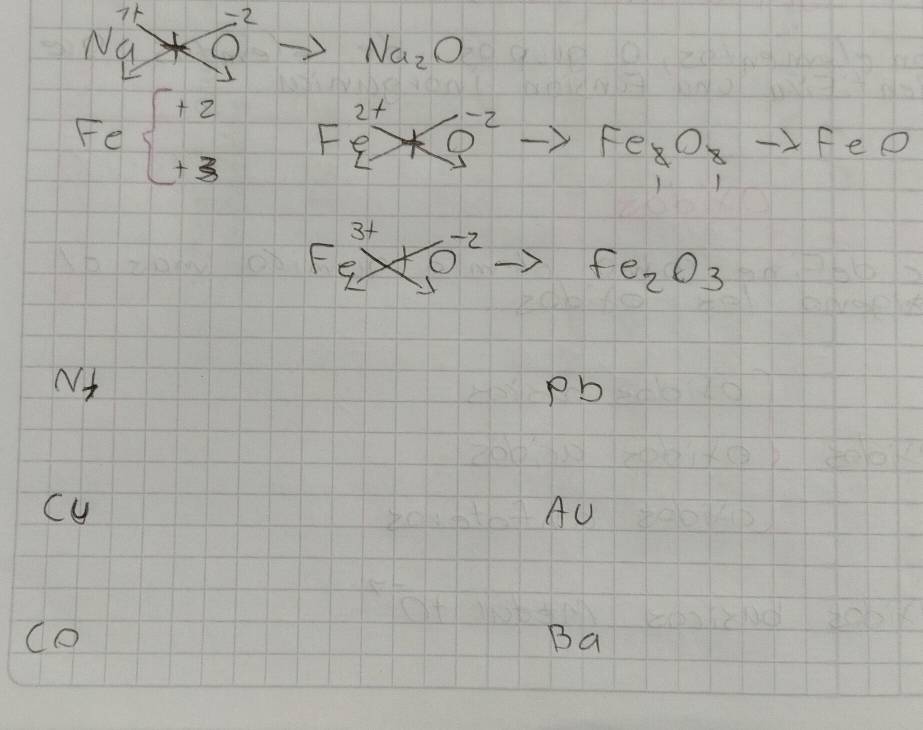 Na¹⁺ O⁻² → Na₂O
Fe { +2 Fe²⁺ O⁻² → Fe₂O₂ → FeO
+3 1 1
Fe³⁺ O⁻² → Fe₂O₃
Ni Pb
Cu Au
Co Ba